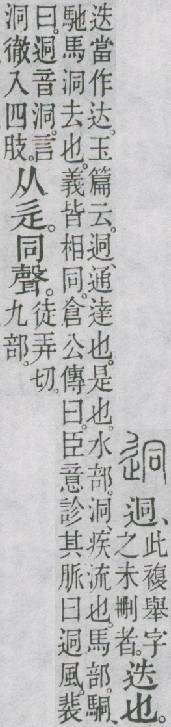 迵 迵、
此複舉字
之未刪者。
迭也。
迭當作达。玉篇云。迵、通達也。是也。水部。洞、疾流也。馬部。駧、
馳馬洞去也。義皆相同。倉公傳曰。臣意診其脈曰迵風。裴
曰。迵音洞。言
洞徹入四肢。
从辵。同聲。
徒弄切。
九部。